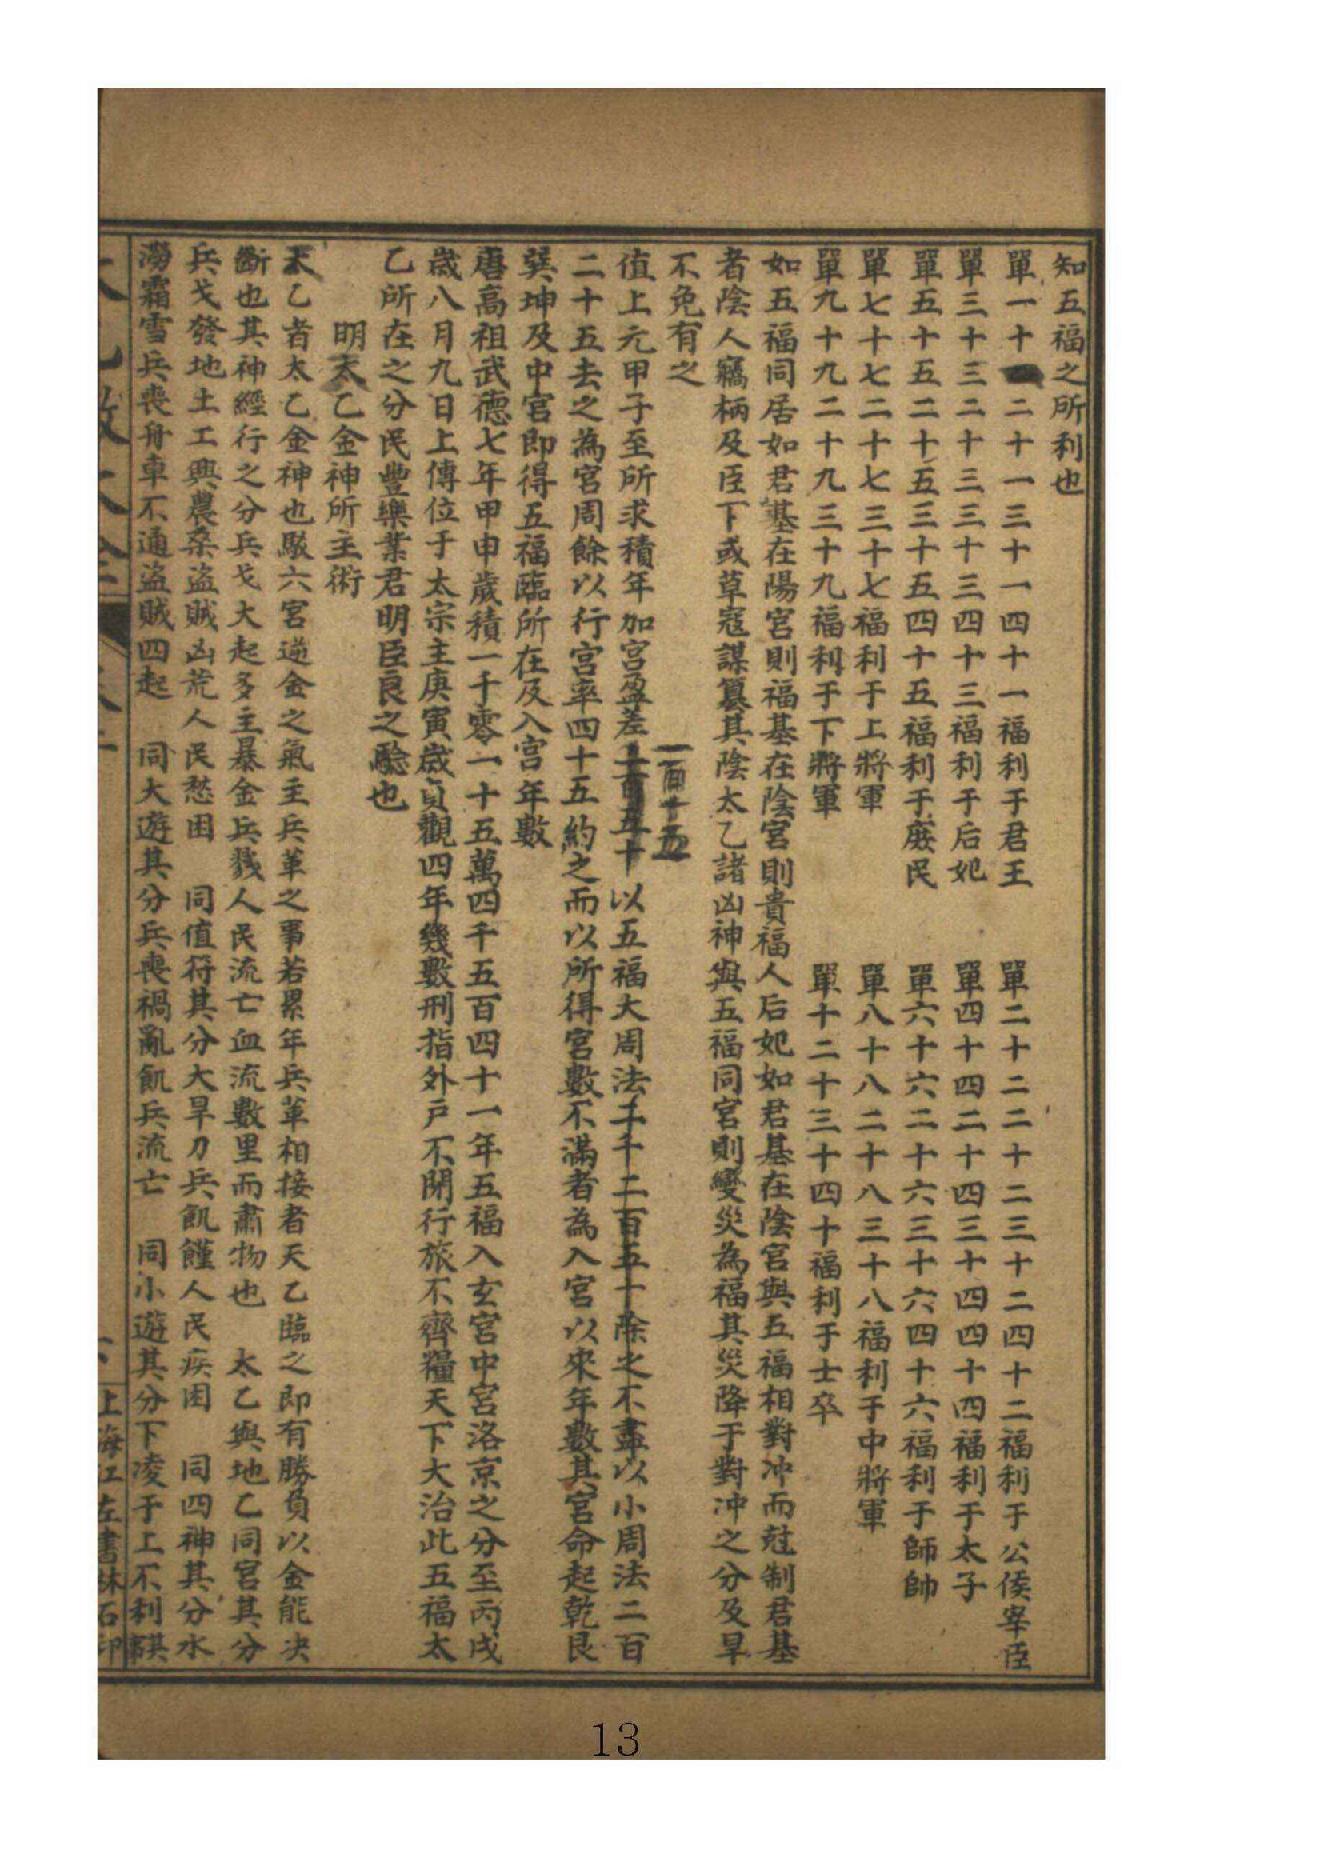 知五福之所利也
單一十一二十一三十一四十一福利于君王　單二十二二十二三十二四十二福利于公侯宰臣
單三十三二十三三十三四十三福利于后妃　單四十四二十四三十四四十四福利于太子
單五十五二十五三十五四十五福利于庶民　單六十六二十六三十六四十六福利于師帥
單七十七二十七三十七福利于上將軍　單八十八二十八三十八福利于中將軍
單九十九二十九三十九福利于下將軍　單十二十三十四十福利于士卒
如五福同居如君基在陽宮則福基在陰宮則貴福人后妃如君基在陰宮與五福相對冲而尅制君基
者陰人竊柄及臣下或草寇謀篡其陰太乙諸凶神與五福同宮則變災為福其災降于對冲之分及旱
不免有之
一百十五
值上元甲子至所求積年加宮盈差以五福大周法二千二百五十除之不盡以小周法二百
二十五去之為宮周餘以行宮率四十五約之而以所得宮數不滿者為入宮以來年數其宮命起乾艮
巽坤及中宮即得五福臨所在及入宮年數
唐高祖武德七年甲申歲積一千零一十五萬四千五百四十一年五福入玄宮中宮洛京之分至丙戌
歲八月九日上傳位于太宗主庚寅歲貞觀四年幾數刑指外户不閉行旅不齊糧天下大治此五福太
乙所在之分民豐樂業君明臣良之騐也
明天乙金神所主術
天乙者太乙金神也駁六宮遊金之氣主兵革之事若累年兵革相接者天乙臨之即有勝負以金能决
斷也其神經行之分兵戈大起多主暴金兵戮人民流亡血流數里而肅物也　太乙與地乙同宮其分
兵戈發地土工興農桑盜賊凶荒人民愁困　同值符其分大旱刀兵飢饉人民疾困　同四神其分水
澇霜雪兵喪舟車不通盜賊四起　同大遊其分兵喪禍亂飢兵流亡　同小遊其分下凌于上不利
上海江左書林石印
13